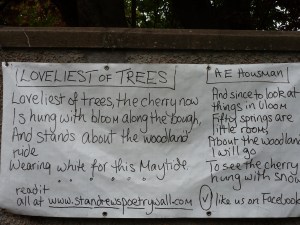 LOVELIEST OF TREES
Loveliest of trees, the cherry now
Is hung with bloom along the bough,
And stands about the woodland
ride
Wearing white for this Maytide
read it
all at www.standrewspoetrywall.com
A E Housman
And since to look at
things in bloom
Fifty springs are
little room,
About the woodland
I will go
To see the cherry
hung with snow
like us on Facebook